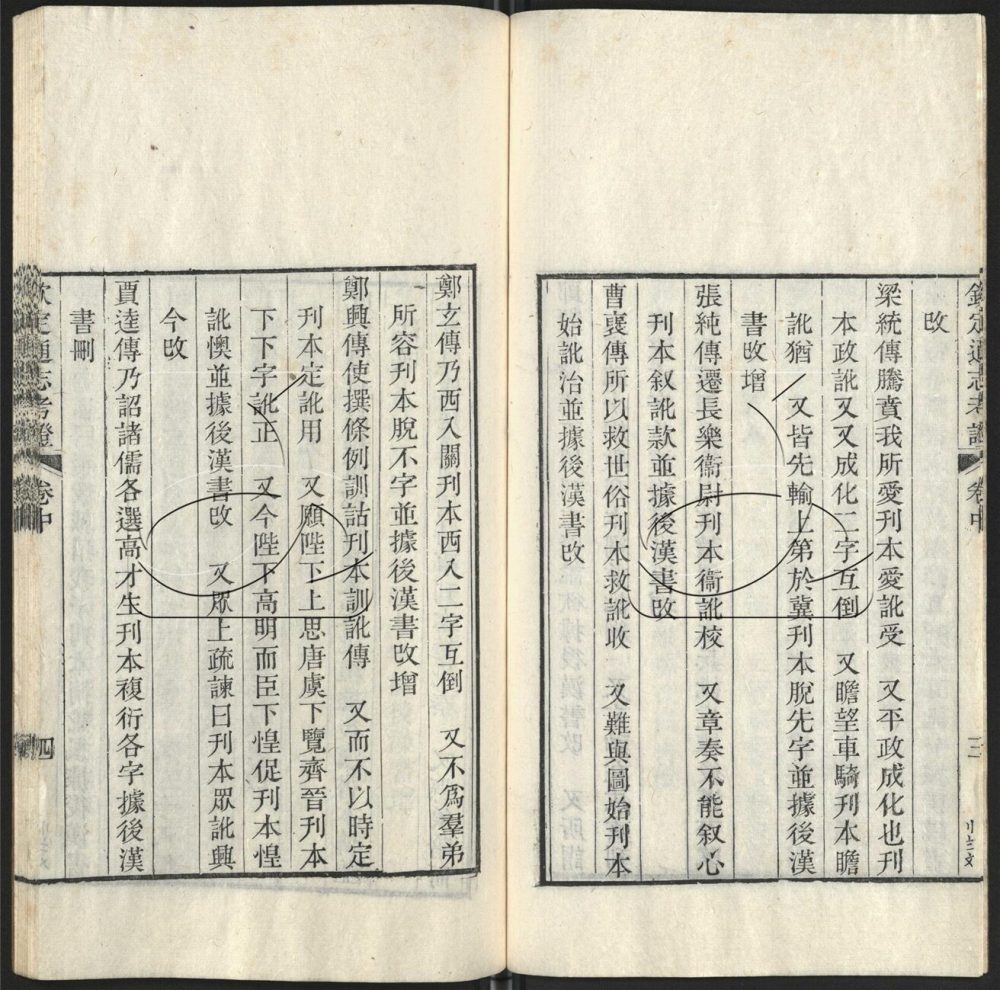 欽定通志考證 卷中 三
改
梁統傳騰賁我所愛刊本愛訛受 又平政成化也刊
本政訛又又成化二字互倒 又瞻望車騎刊本瞻
訛猶 又皆先輸上第於冀刊本脫先字並據後漢
書改增
張純傳遷長樂衞尉刊本衞訛校 又章奏不能叙心
刊本叙訛款並據後漢書改
曹襃傳所以救世俗刊本救訛收 又難與圖始刊本
始訛治並據後漢書改
鄭玄傳乃西入關刊本西入二字互倒 又不爲羣弟
所容刊本脫不字並據後漢書改增
鄭興傳使撰條例訓詁刊本訓訛傳 又而不以時定
刊本定訛用 又願陛下上思唐虞下覽齊晉刊本
下下字訛正 又今陛下高明而臣下惶促刊本惶
訛懊並據後漢書改 又眾上疏諫曰刊本眾訛興
今改
賈逵傳乃詔諸儒各選高才生刊本複衍各字據後漢
書刪
欽定通志考證 卷中 四